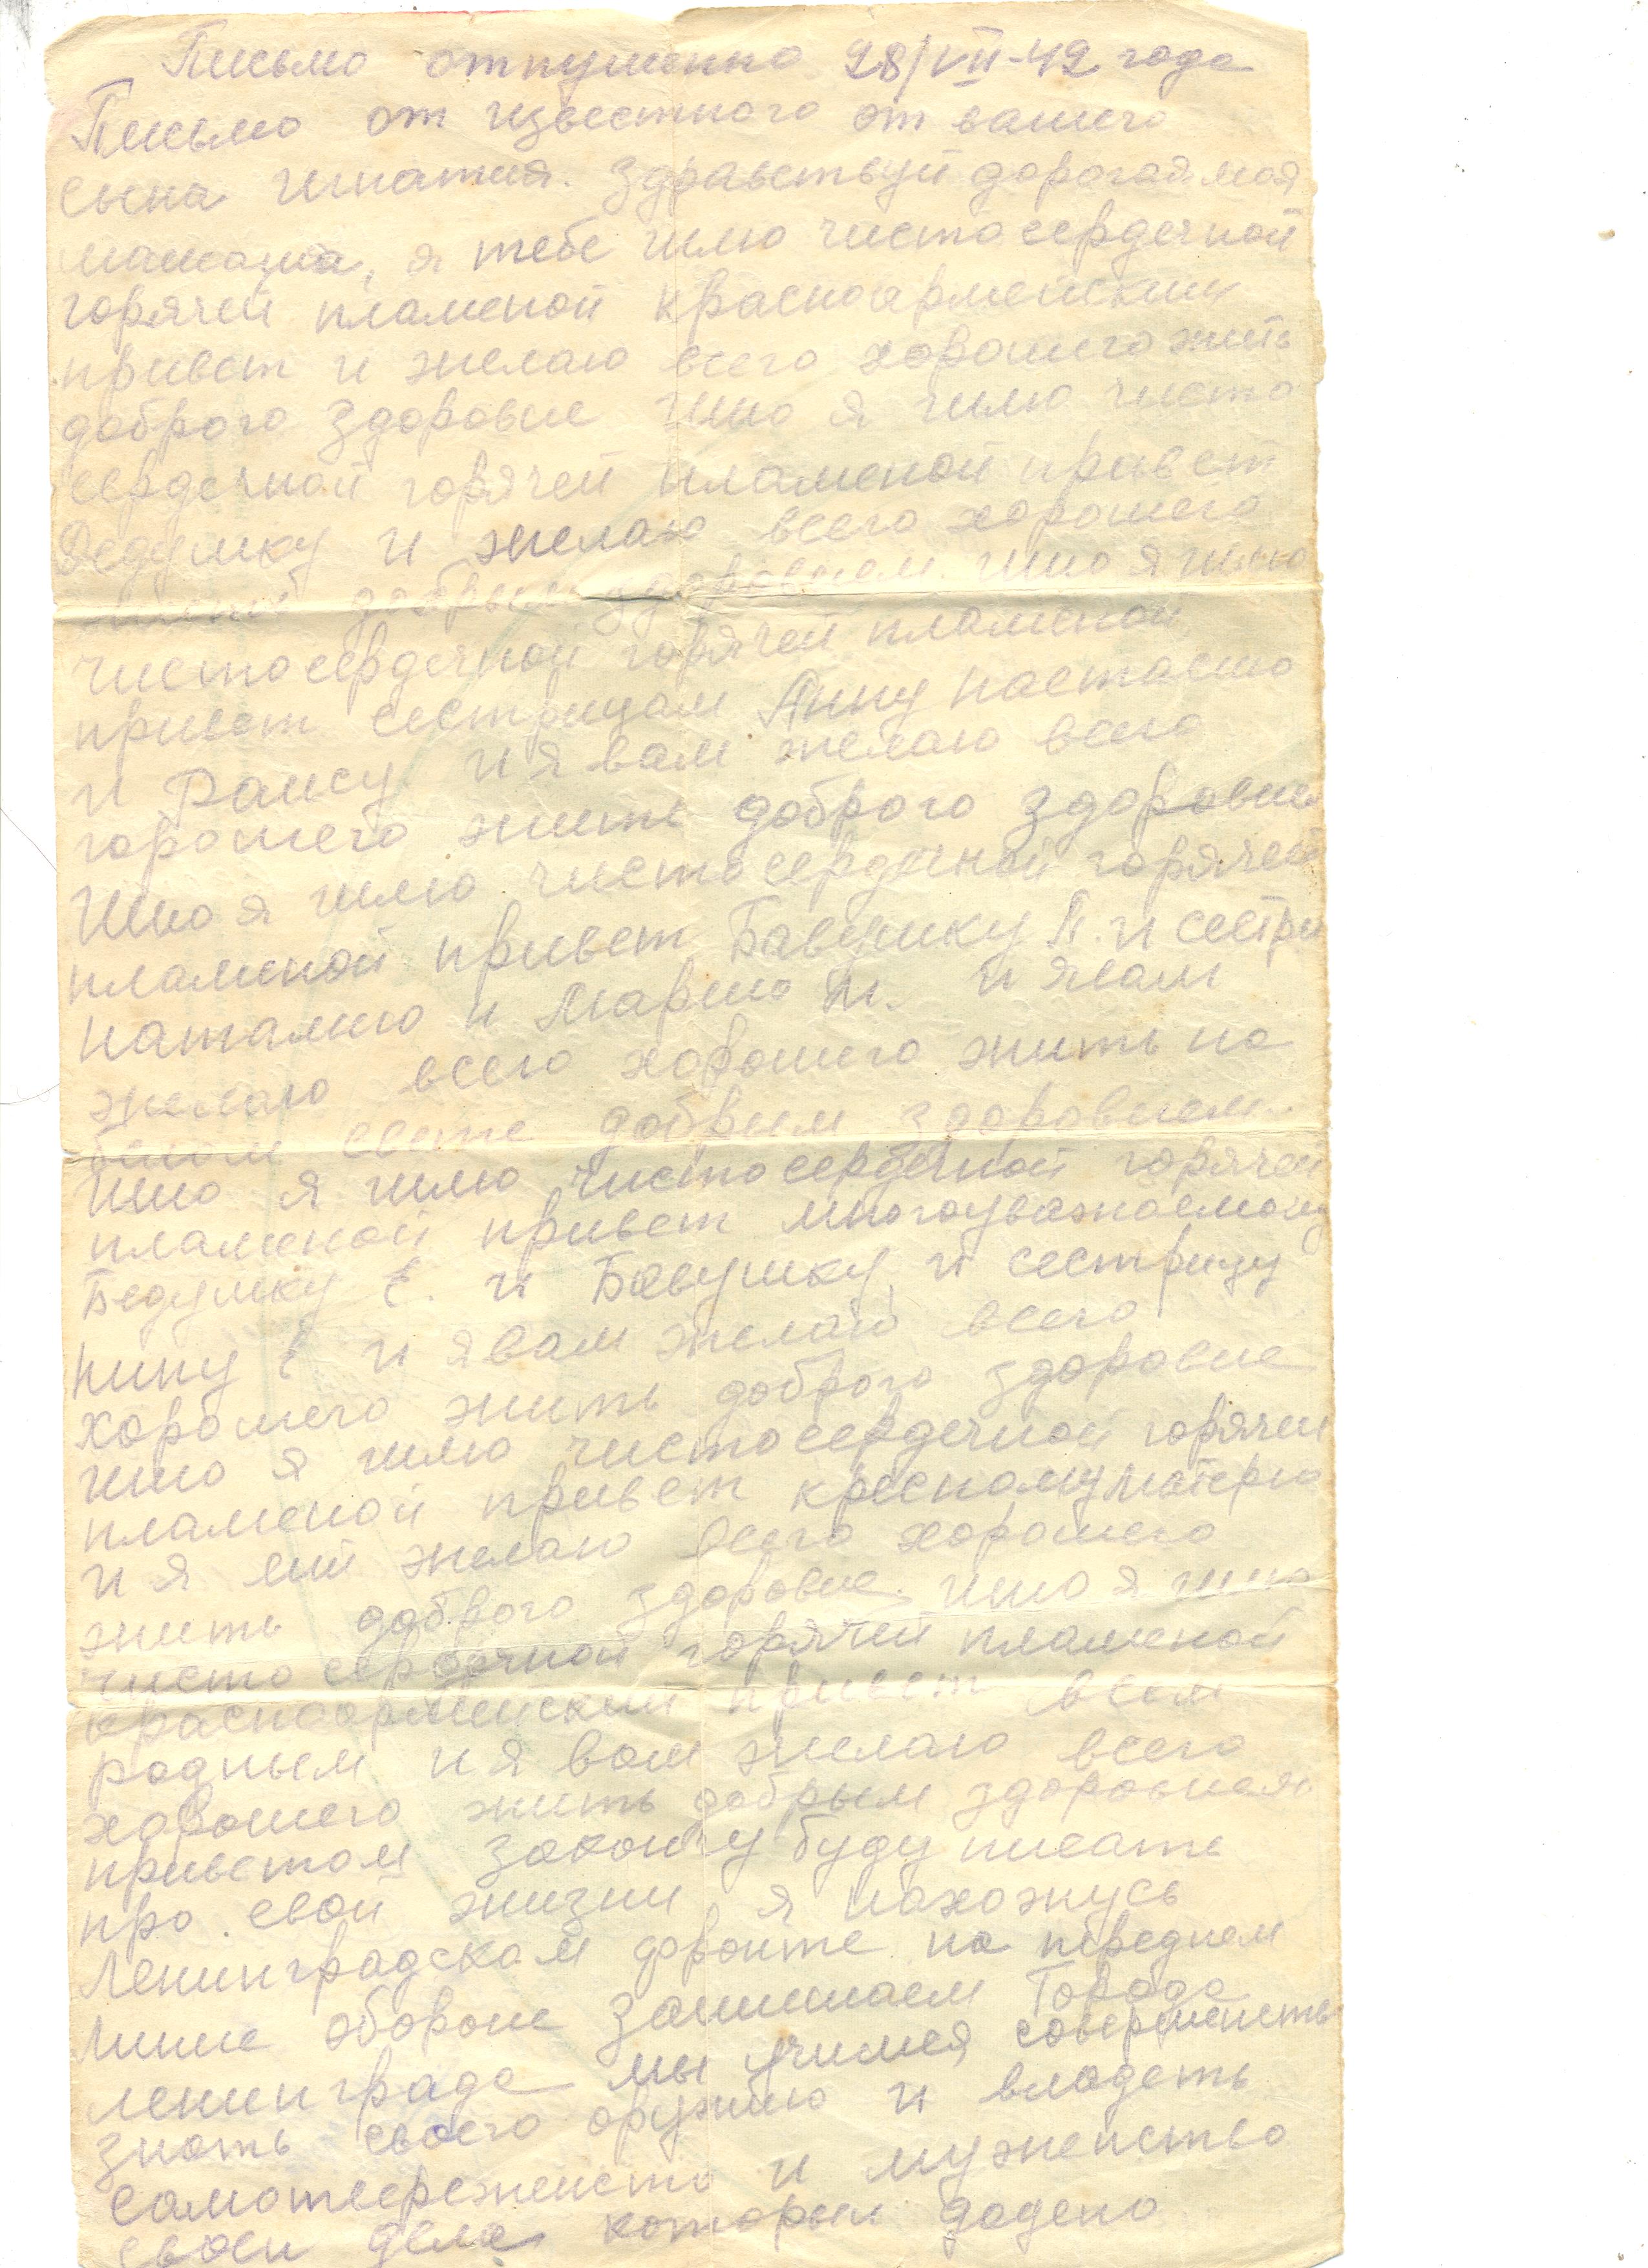 Письмо отпушенно 28/VII-42 года
Письмо от известного от вашего
сына Игнатия. Здравствуй дорогая моя
мамаша, я тебе шлю чисто сердечной
горячей пламеной красноармейским
привет и желаю всего хорошего жить
доброго здоровие ишо я шлю чисто
сердечной горячей пламеной правет
Дедушку и желаю всего хорошего
добрым здоровием. ишо я шлю
чисто сердечной горячей пламеной
привет сестрицам Анну настасию
и Раису. и я вам желаю всего
горошего жить доброго здоровие
Ишо я шлю чисто сердечной горячей
пламеной привет Бавушку П. и сестри
наталию и Марию М. и явам
желаю всего хорошего жить на
белом свете добрим здоровием.
ишо я шлю чисто сердечной горячей
пламеной привет многоуважаемому
Бедушку Е. и Бавушку и сестрицу
нину Е и явам желаю всего
хорошего жить доброго здоровие
ишо я шлю чисто сердечной горячей
пламеной привет кресномуматерю
и я ей желаю всего хорошего
жить доброго здоровие. ишо я шлю
чисто сердечной горячей пламеной
красноармейским привет всем
родным и я вам желаю всего
хорошего жить добрым здоровием
приветом закончу буду писать
про свой жизни я нахожусь
Ленинградскам фронте на переднем
линие обороне защишаем Города
ленинграда мы учимся совершенств
знать своего оружию и владеть
самотвержености и муженство
своей дела которым дадено